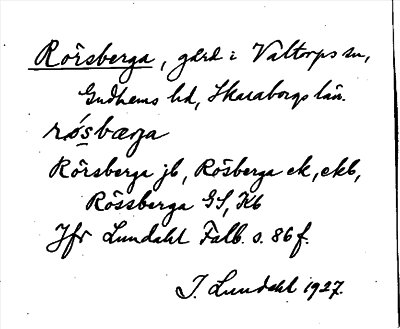 Rörsberga, gård i Valtorps sn,
Gudhems hd, Skaraborgs län.
rósbærja
Rörsberga jb, Rösberga ek, ekb,
Rössberga GS, Kb
Jfr Lundahl Falb. s. 86 f.
I. Lundahl 1927.